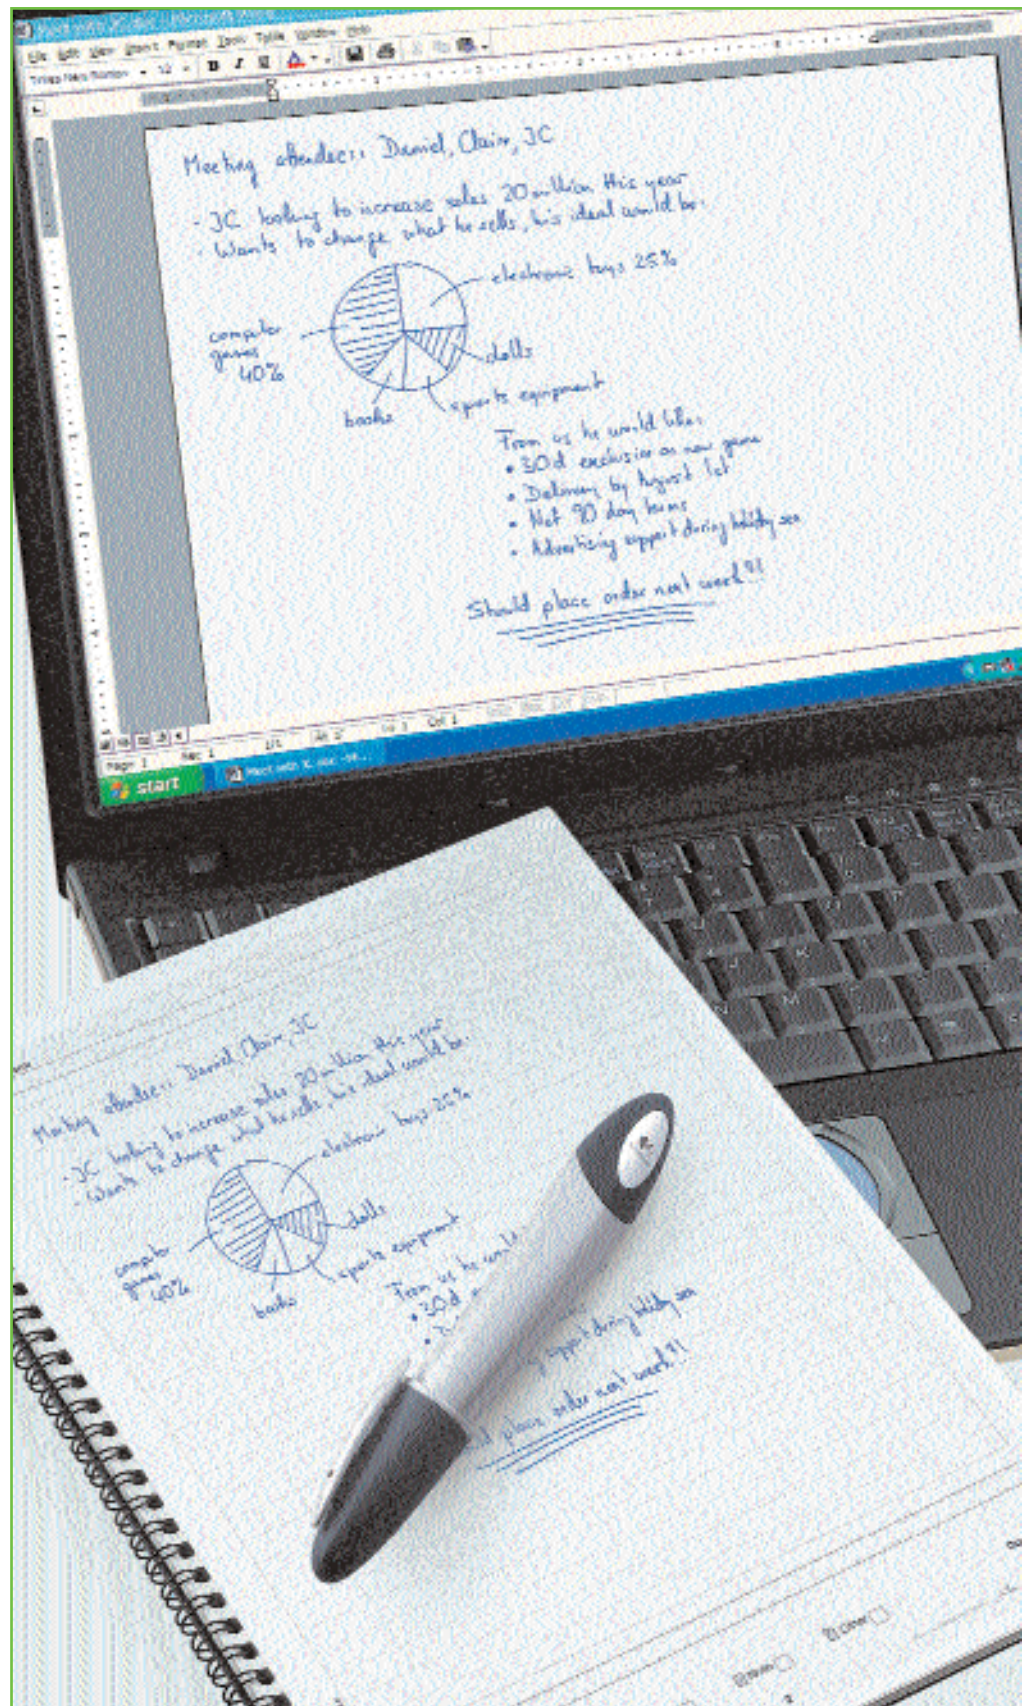 File Edit View Insert Format Tools Table Window Help
Times New Roman 12 B I U A
Meeting attendees: Daniel, Claire, JC
- JC looking to increase sales 20 million this year
- Wants to change what he sells, his ideal would be:
electronic toys 25%
computer
games
40%
dolls
sports equipment
books
From us he would like:
• 30d exclusive on new game
• Delivery by August 1st
• Net 90 day terms
• Advertising support during holiday sea
Should place order next week!!
Page 1 Sec 1 1/1 Col 1
start
Meeting attendees: Daniel, Claire, JC
- JC looking to increase sales 20 million this year
- Wants to change what he sells, his ideal would be:
electronic toys 25%
computer
games
40%
dolls
sports equipment
books
From us he would
• 30d
support during holiday sea
place order next week!!